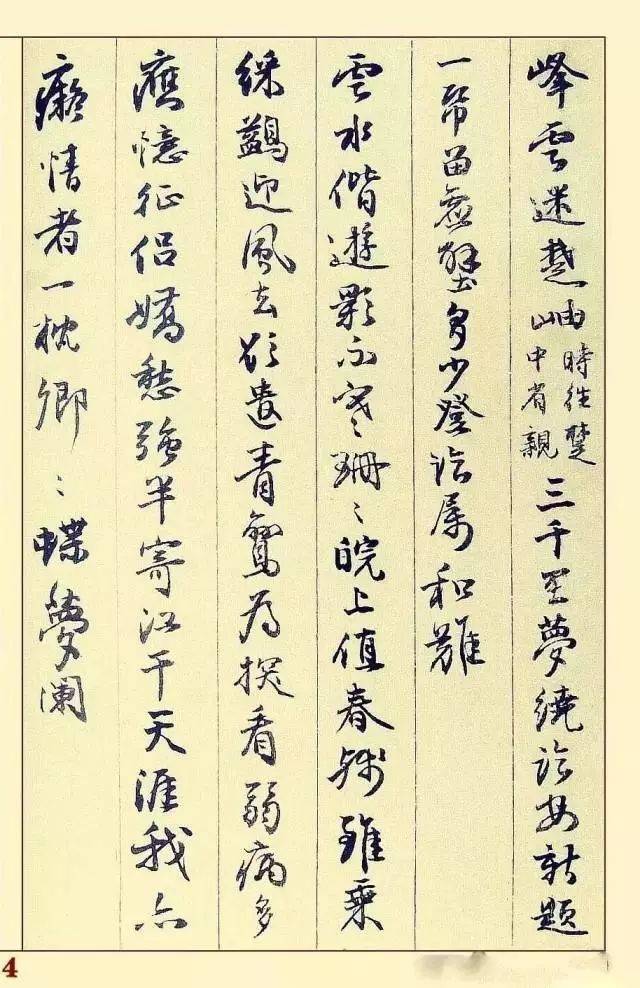 峰雲迷楚岫時往楚中省親三千里夢繞臨安新題
一帋留壁多少登臨屬和難
雲水偕遊影不寒珊〻皖上值春殘雖乘
綵鷁迎風去欲遣青鸞為探看弱病多
應憶征侶嬌愁強半寄江干天涯我亦
癡情者一枕卿〻蝶夢闌
4